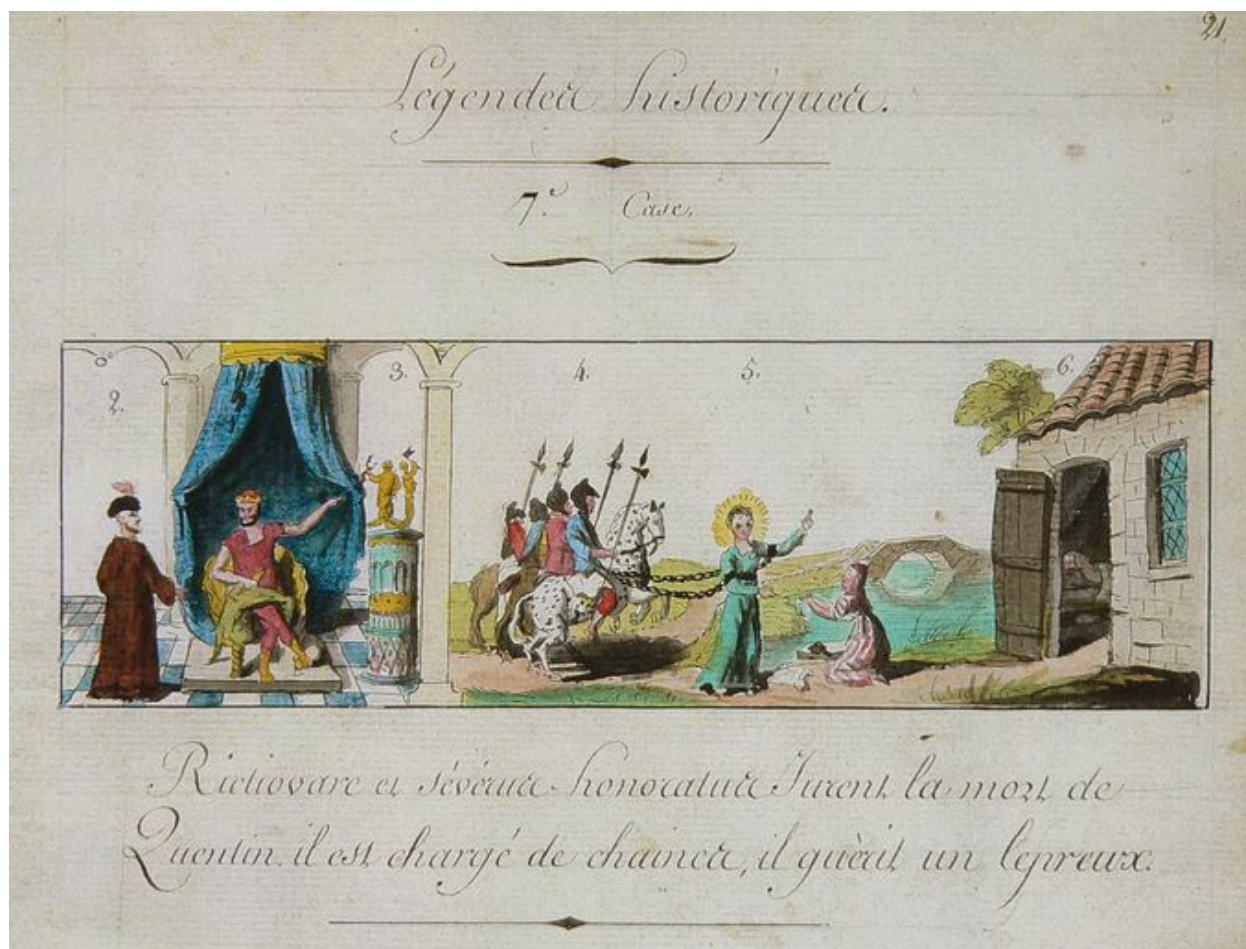 21.
Légendes historiques.
7.e Case.
2. 3. 4. 5. 6.
Rictiovare et sévérus honoratus Jurent la mort de
Quentin. il est chargé de chaines, il guèrit un lepreux.